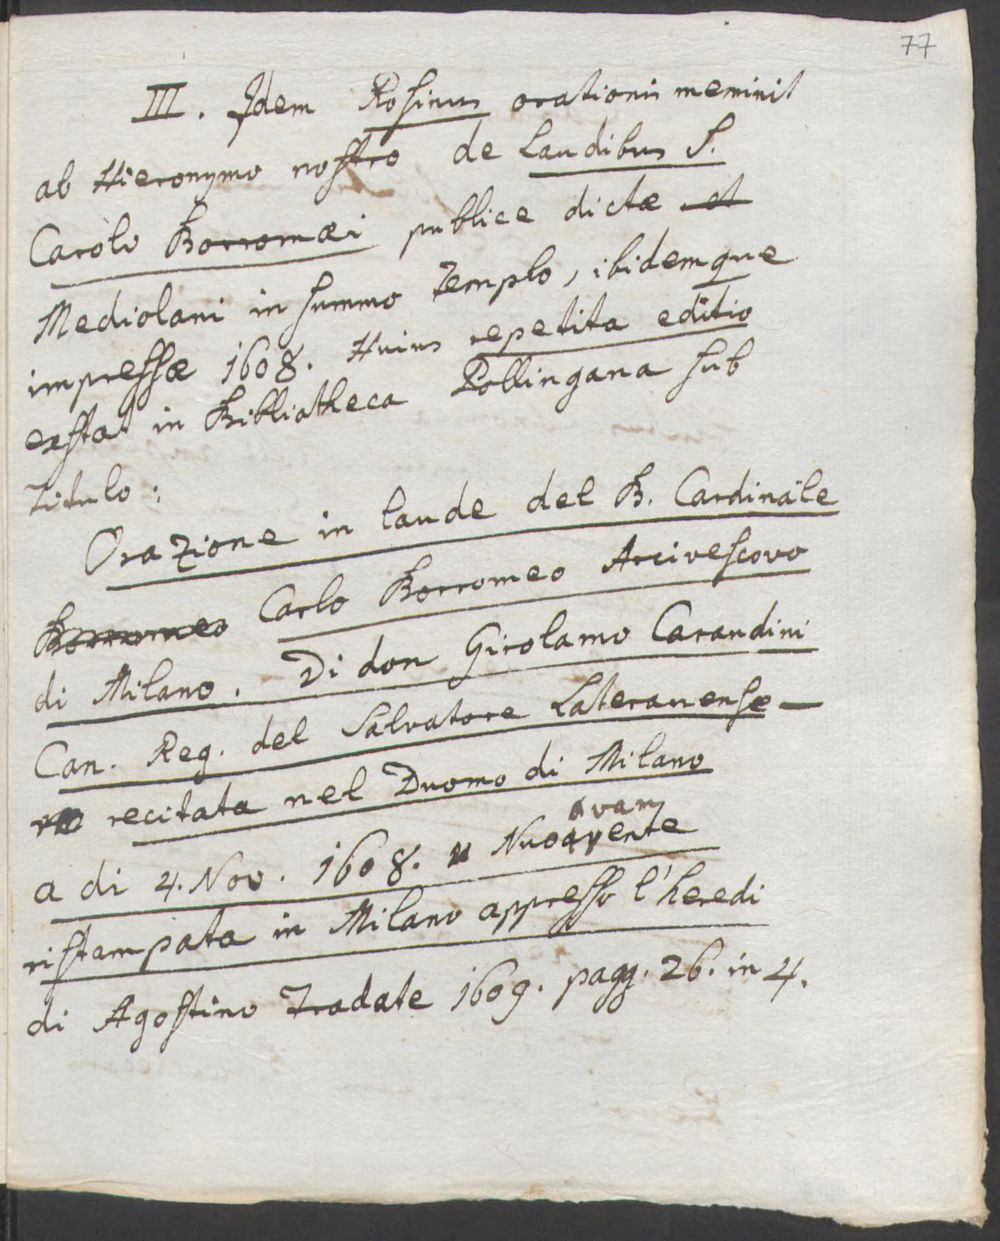 77
III. Idem Rosinus orationis meminit
ab Hieronymo nostro de Laudibus S.
Caroli Borromæi publice dictæ et
Mediolani in summo Templo, ibidemque
impressæ 1608. Huius repetita editio
exstat in Bibliatheca Pollingana sub
Titulo:
Orazione in laude del B. Cardinale
Borromeo Carlo Borromeo Arcivescovo
di Milano. Di don Girolamo Carandini
Can. Reg. del Salvatore Lateranense –
recitata nel Duomo di Milano
a di 4. Nov. 1608. Nuovamente
ristampata in Milano appresso l'heredi
di Agostino Tradate 1609. pagg. 26. in 4.